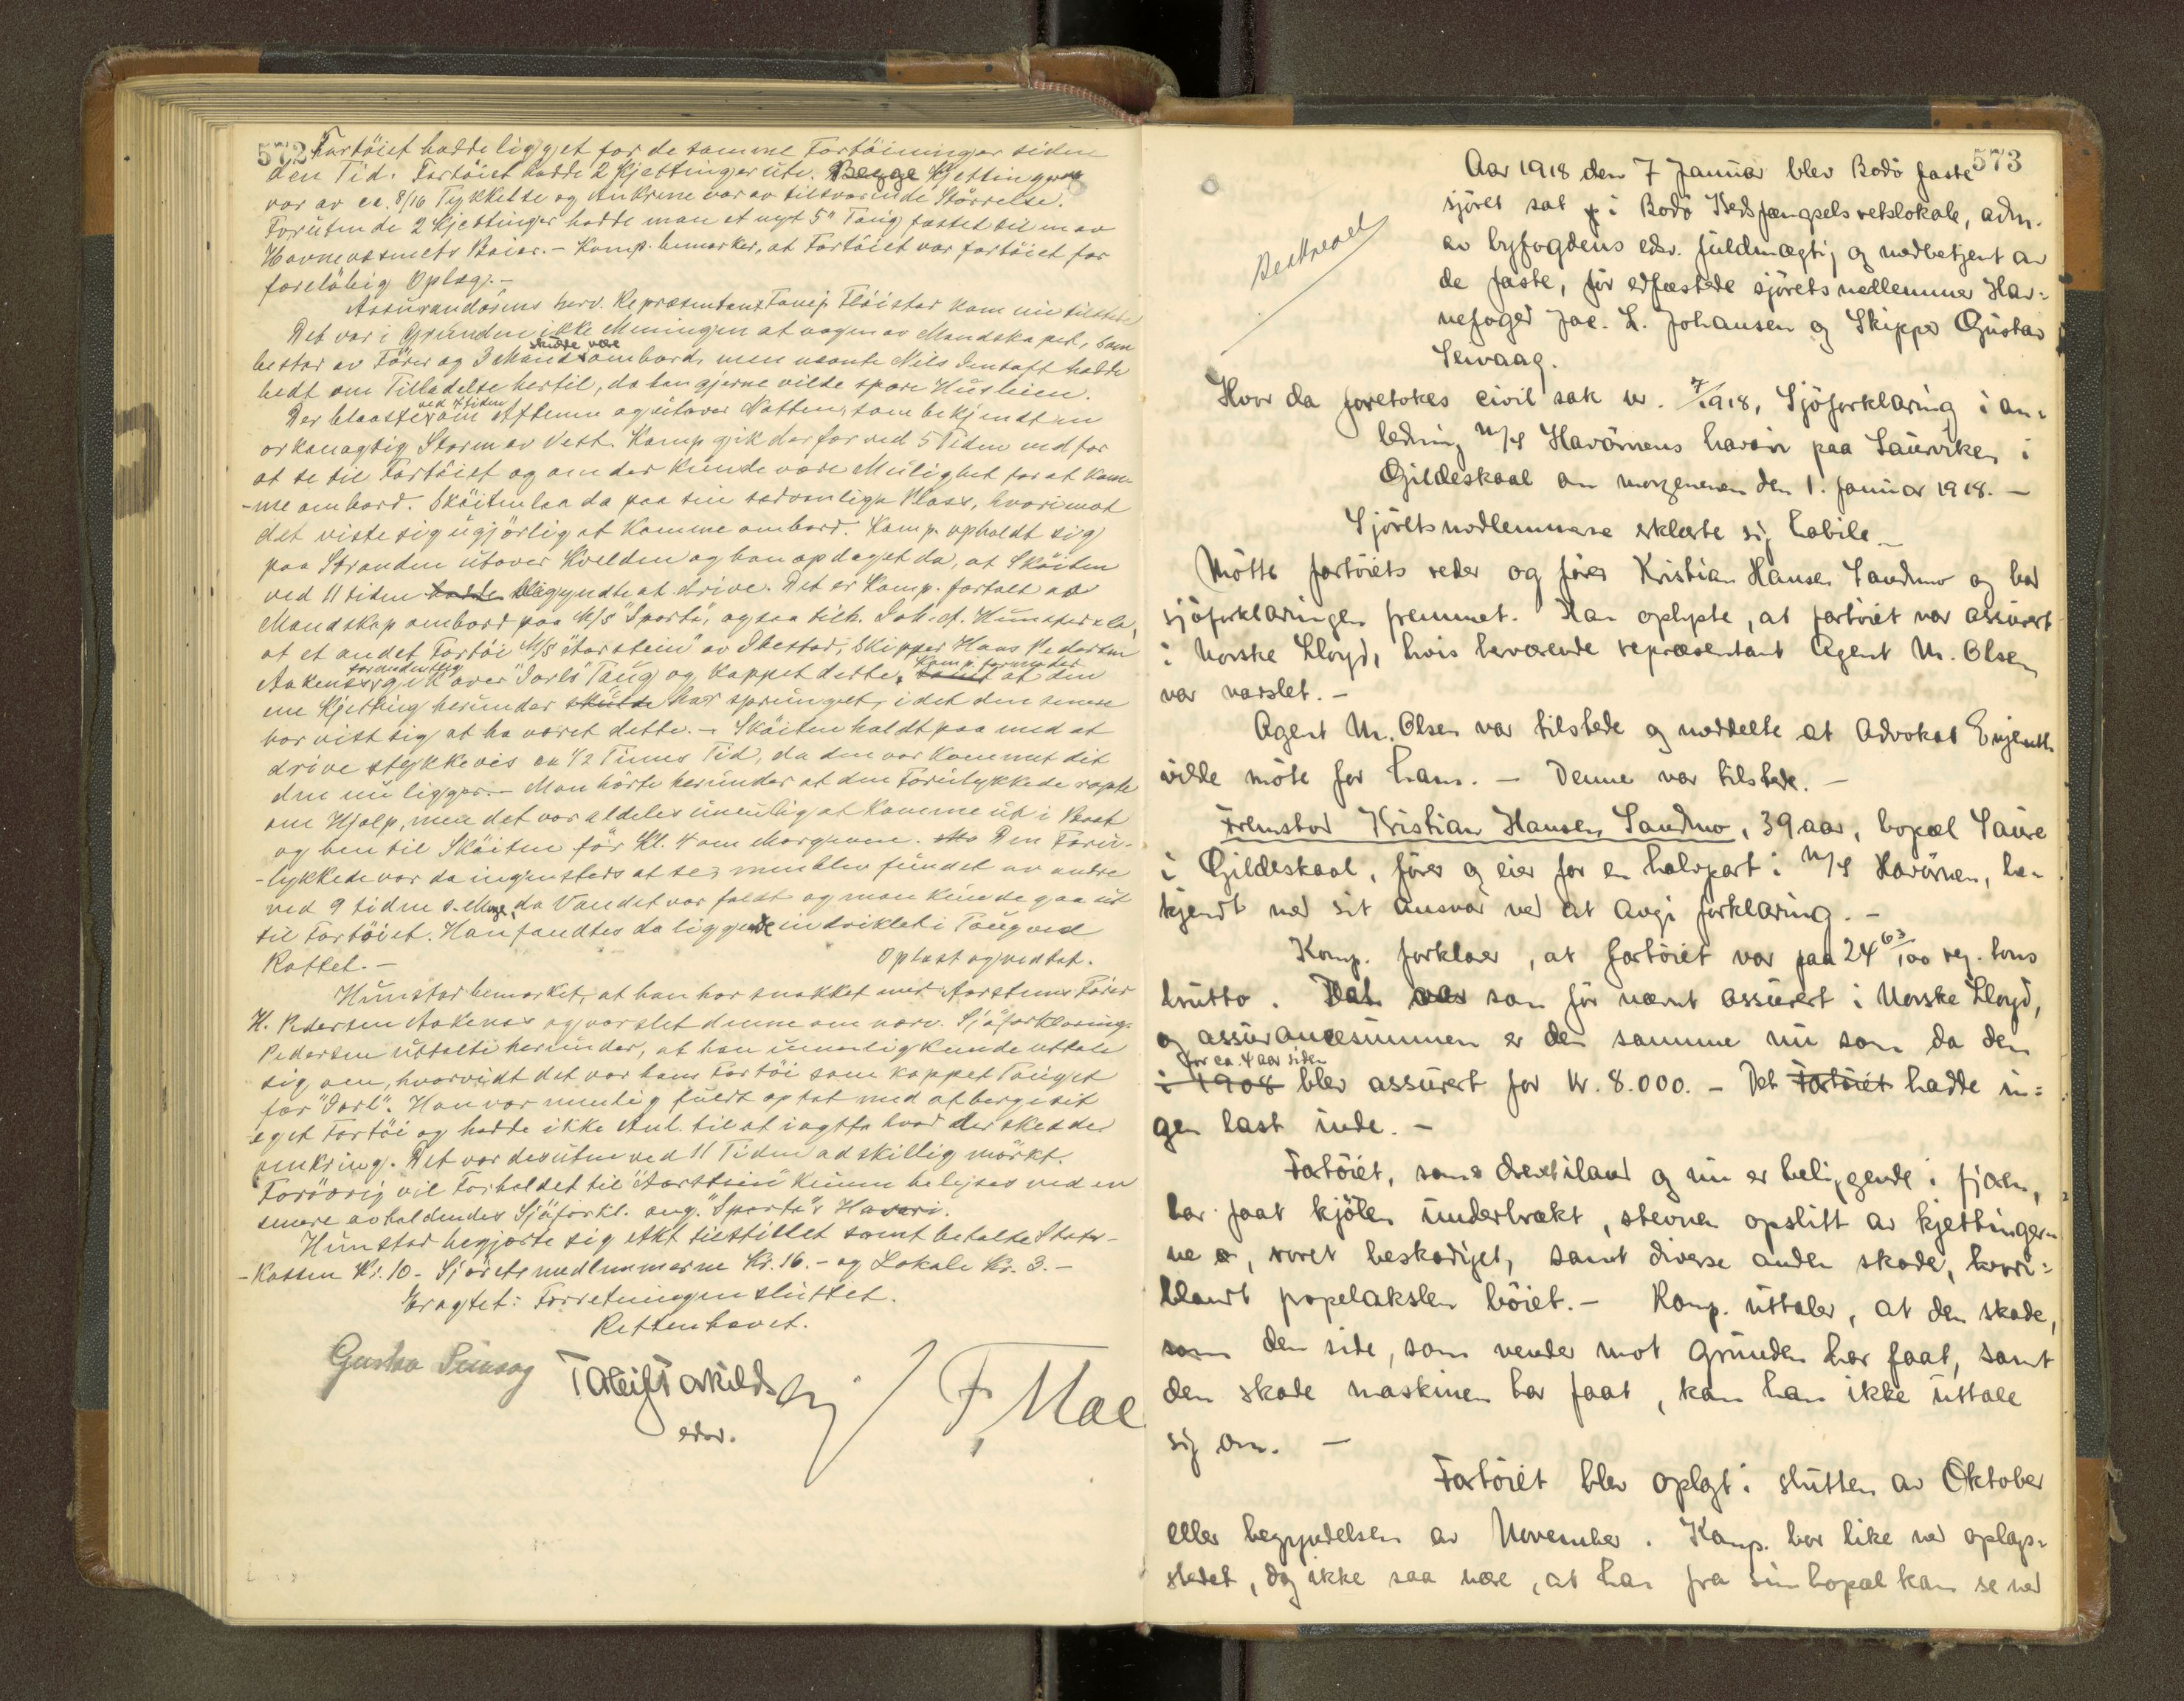 572
Fartöiet hadde ligget for de samme Fortöininger siden
den Tid. Fartöiet hadde 2 Kjettinger ute. Begge Kjettinger
var av ca. 8/16 Tykkelse og Ankrene var av tilsvarende Störrelse.
Foruten de 2 Kjettinger hadde man et nyt 5" Taug fastet til en av
Havnevæsenets Baier. - Komp. bemerker, at Fartöiet var fortöiet for
forelöbig Oplag. -
Assurandörens herv. Repræsentant Flöistad kom nu tilstede
Det var i Grunden ikke Meningen at nogen av Mandskapet, som
bestod av Förer og 3 Mand skulde være ombord, men nævnte Nils hadde
bedt om Tilladelse hertil, da han gjerne vilde spare Husleien.
Der blaaste ved 7 tiden om Aftenen og utover Natten, som bekjendt en
orkanagtig Storm av Vest. Komp gik derfor ved 5 Tiden ned for
at se til Fartöiet og om der kunde være Mulighet for at kom-
-me ombord. Sköiten laa da paa sin sædvanlige Plass, hvorimot
det viste sig ugjörlig at komme ombord. Komp. opholdt sig
paa Stranden utover Kvelden og han opdaget da, at Sköiten
ved 11 tiden hadde begyndte at drive. Det er Komp. fortalt av
Mandskap ombord paa M/S "Sporta", ogsaa tilh. Joh. A. Hunstad
at et andet Fartöi M/S "Aarstein" av Ibestad, Skipper Hans Pedersen
Aakenes forandentlig gik over "Jarls" Taug og kappet dette. Komp. formoder at den
ene Kjetting herunder skulde har sprunget, idet den senere
har vist sig at ha været dette. - Sköiten holdt paa med at
drive stykkevis en 1/2 Times Tid, da den var kommet dit
den nu ligger. - Man hörte herunder at den Forulykkede ropte
om Hjælp, men det var aldeles umulig at komme ut i Baat
og hen til Sköiten för Kl. 4 om Morgenen. Den Foru-
-lykkede var da ingensteds at se, men blev fundet av andre
ved 9 tiden s. Morg., da Vandet var faldt og man kunde gaa ut
til Fartöiet. Han fandtes da liggende indviklet i Taug ved
Rattet. - Oplæst og vedtat.
Hunstad bemerket, at han har snakket med Aarsteins Förer
H. Pedersen Aakenes og varslet denne om nærv. Sjöforklaring.
Pedersen uttalte herunder, at han umulig kunde uttale
sig om, hvorvidt det var hans Fartöi som kappet Tauget
for "Jarl". Han var nemlig fuldt optat med at berge sit
eget Fartöi og hadde ikke Anl. til at iagtta hvad der skedde
omkring. Det var desuten ved 11 Tiden adskillig mörkt.
Forövrig vil Forholdet til "Aarstein" kunne belyses ved en
senere avholdendes Sjöforkl. ang. "Sporta"s Havari.
Hunstad begjærte sig Akt tilstillet samt betalte Stats-
-Kassen Kr. 10 - Sjöretsmedlemmerne Kr. 16. - og Lokale Kr. 3. -
Eragtet: Forretningen sluttet.
Retten hævet.
Gustav Seivaag
edsv.
F. Moe
573
Beskrevet
Aar 1918 den 7 Januar blev Bodö faste
sjöret sat i Bodö Kredsfængsels retslokale, adm.
av byfogdens edsv. fuldmægtig og medbetjent av
de faste, för edfæstede sjöretsmedlemmer Hav-
nefoged Jac. L. Johansen og Skipper Gustav
Seivaag.
Hvor da foretokes civil sak nr. 7/1918, Sjöforklaring i an-
ledning M/S Havörnens havari paa Saurviken i
Gildeskaal om morgenen den 1. Januar 1918. -
Sjöretsmedlemmene erklærte sig habile -
Mötte fartöiets reder og förer Kristian Hansen Sandmo og bad
sjöforklaringen fremmet. Han oplyste, at fartöiet var assurert
i Norske Lloyd, hvis herværende repræsentant Agent M. Olsen
var varslet. -
Agent M. Olsen var tilstede og meddelte at Advokat Enjenth
vilde möte for ham. - Denne var tilstede. -
Fremstod Kristian Hansen Sandmo, 39 aar, bopæl Saure
i Gildeskaal, förer og eier for en halvpart i M/S Havörnen, be-
kjendt med sit ansvar ved at avgi forklaring. -
Komp. forklarer, at fartöiet var paa 24 63/100 reg. tons
brutto. Det var som för nævnt assurert i Norske Lloyd,
og assurancesummen er den samme nu som da den
for ca. 4 aar siden
i 1908 blev assurert for kr. 8.000. - Det Fartöiet hadde in-
gen last inde. -
Fartöiet, som drev iland og nu er beliggende i fjæren,
har faat kjölen undertrækt, stevnen opslitt av kjettinger-
ne, roret beskadiget, samt diverse anden skade, hvori-
blandt propelakslen böiet. - Komp. uttaler, at den skade,
som den side, som vender mot grunden har faat, samt
den skade maskinen har faat, kan han ikke uttale
sig om. -
Fartöiet blev oplagt i slutten av Oktober
eller begyndelsen av November. Komp. bor like ved oplags-
stedet, dog ikke saa nære, at han fra sin bopæl kan se ned